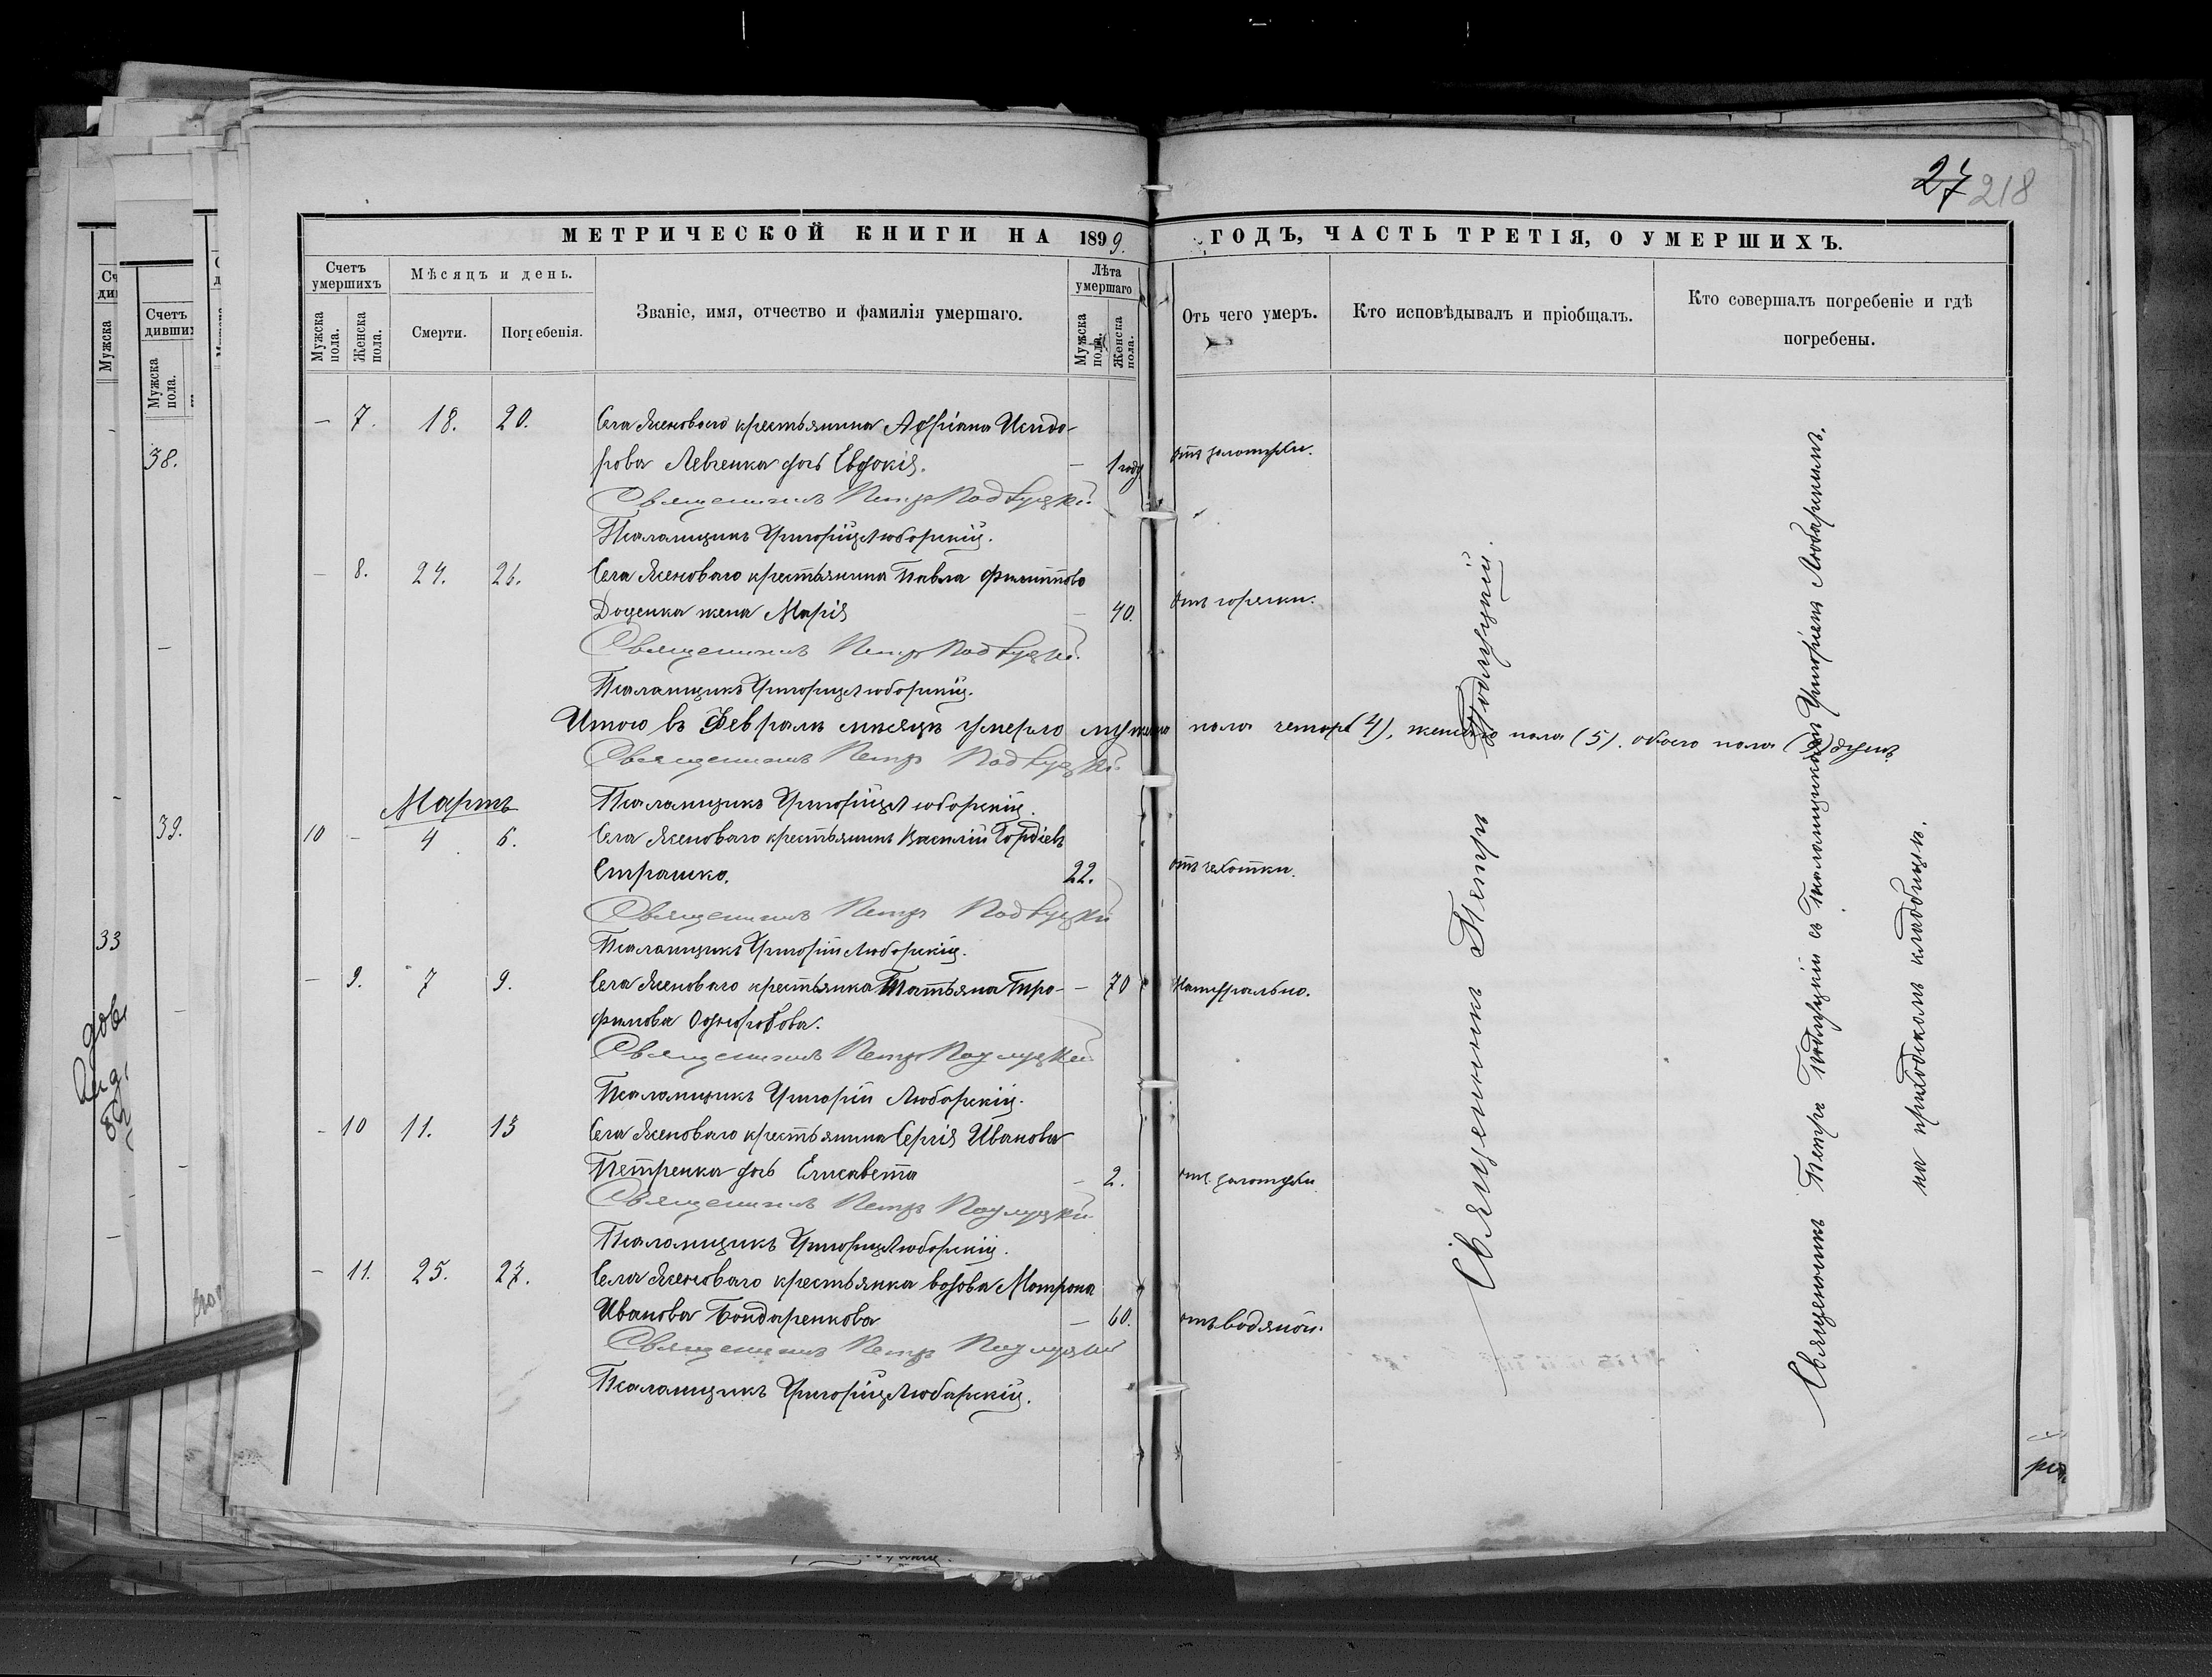 27 218
МЕТРИЧЕСКОЙ КНИГИ НА 1899. ГОДЪ, ЧАСТЬ ТРЕТІЯ, О УМЕРШИХЪ.
Счетъ умершихъ
Мѣсяцъ и день.
Званіе, имя, отчество и фамилія умершаго.
Лѣта умершаго
Отъ чего умеръ.
Кто исповѣдывалъ и пріобщалъ.
Кто совершалъ погребеніе и гдѣ
погребены.
Мужска пола.
Женска пола.
Смерти.
Погребенія.
Мужска пола.
Женска пола.
— 7. 18. 20. Села Ясеноваго крестьянина Адріана Исидо-
рова Левченка дочь Евдокія. — 1 годъ отъ золотухи.
Священникъ Петръ Подлуцкій
Псаломщикъ Григорій Люборскій.
— 8. 24. 26. Села Ясеноваго крестьянина Павла Филиппова
Доценка жена Марія — 40. Отъ горячки.
Священникъ Петръ Подлуцкій
Псаломщикъ Григорій Люборскій.
Итого въ Февралѣ мѣсяцѣ умерло мужска пола четыре (4), женска пола (5). обоего пола (9) душъ
Священникъ Петръ Подлуцкій
Мартъ
Псаломщикъ Григорій Люборскій
10 — 4 6. Села Ясеноваго крестьянинъ Василій Гордіевъ
Страшко. 22. отъ чахотки.
Священникъ Петръ Подлуцкій
Псаломщикъ Григорій Люборскій.
— 9. 7 9. Села Ясеноваго крестьянка Татьяна Тро-
фимова Одноробова. — 70 Натурально.
Священникъ Петръ Подлуцкій
Псаломщикъ Григорій Люборскій.
— 10 11. 13 Села Ясеноваго крестьянина Сергія Иванова
Петренка дочь Елисавета — 2. отъ золотухи
Священникъ Петръ Подлуцкій
Псаломщикъ Григорій Люборскій.
— 11. 25. 27. Села Ясеноваго крестьянка вдова Матрона
Иванова Бондаренкова — 60. отъ водяной.
Священникъ Петръ Подлуцкій
Псаломщикъ Григорій Люборскій.
Священникъ Петръ Подлуцкій.
Священникъ Петръ Подлуцкій съ Псаломщикомъ Григоріемъ Люборскимъ.
на приходскомъ кладбищѣ.
Счетъ
Мужска пола.
38.
39.
33